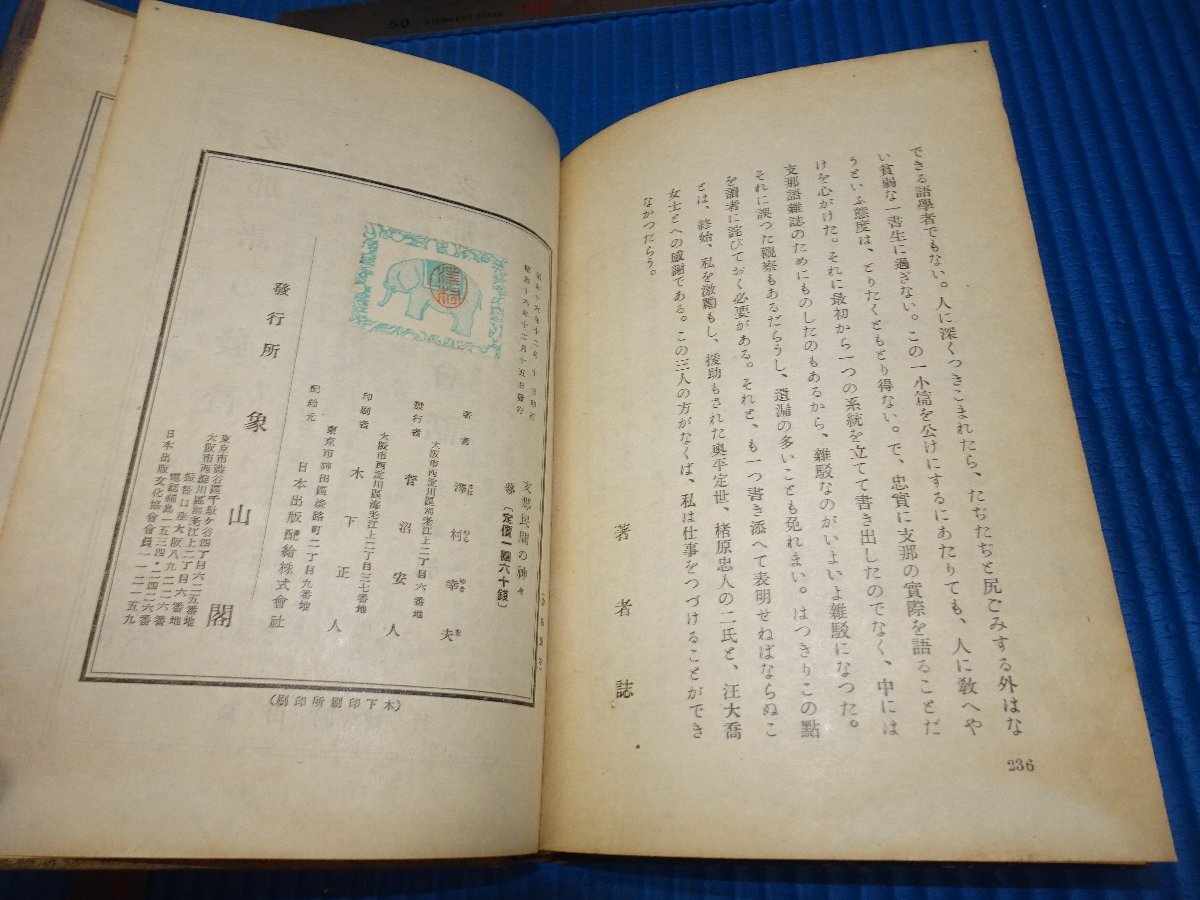 できる語學者でもない。人に深くつきこまれたら、たちたちと尻ごみする外はな
い貧弱な一書生に過ぎない。この一小篇を公けにするにあたりても、人に敎へや
うといふ態度は、とりたくともとり得ない。で、忠實に支那の實際を語ることだ
けを心がけた。それに最初から一つの系統を立てて書き出したのでなく、中には
支那語雜誌のためにものしたのもあるから、雜駁なのがいよいよ雜駁になつた。
それに誤つた觀察もあるだらうし、遺漏の多いことも免れまい。はつきりこの點
を讀者に詫びておく必要がある。それと、も一つ書き添へて表明せねばならぬこ
とは、終始、私を激勵もし、援助もされた奥平定世、楮原忠人の二氏と、汪大喬
女士とへの感謝である。この三人の方がなくば、私は仕事をつづけることができ
なかつたらう。
著者誌
236
昭和十六年十二月十日印刷
昭和十六年十二月十五日發行
支那民間の神々
〔定價一圓六十錢〕
著者 澤村幸夫
さは むら ゆき を
大阪市西淀川區海老江上二丁目六番地
發行者 菅沼安人
大阪市西淀川區海老江上二丁目三七番地
印刷者 木下正人
東京市神田區淡路町二丁目九番地
配給元 日本出版配給株式會社
發行所 象山閣
東京市澁谷區千駄ケ谷四丁目六二五番地
大阪市西淀川區海老江上二丁目六番地
振替口座大阪八九二二六番
電話福島一五三四・二四二六番
日本出版文化協會會員一一二一五九
(木下印刷所印刷)
50 STAINLESS STEEL 100